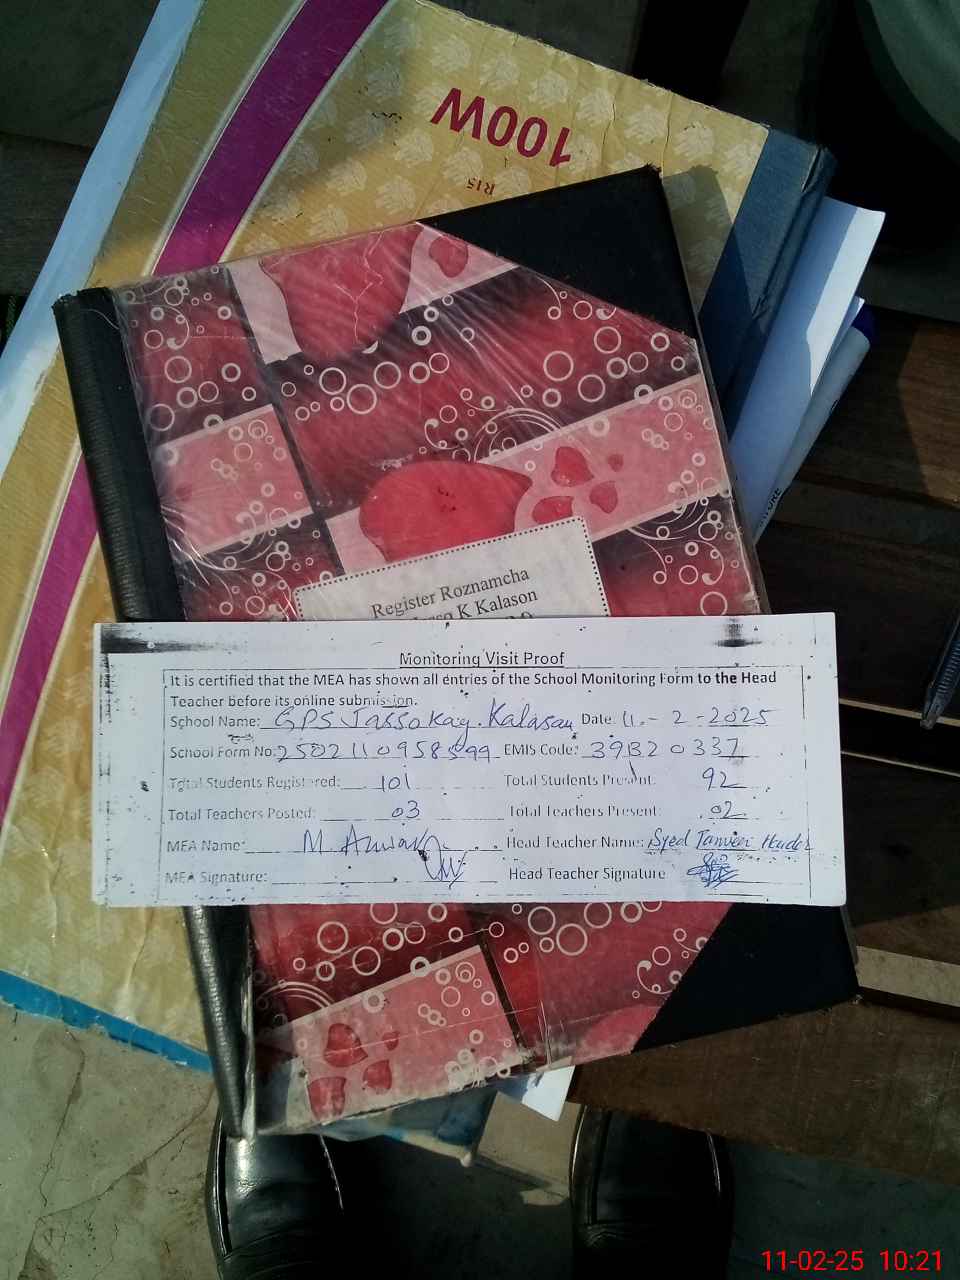 100W
R15
Register Roznamcha
K Kalason
Monitoring Visit Proof
It is certified that the MEA has shown all entries of the School Monitoring Form to the Head
Teacher before its online submission.
School Name: GPS Jasso Kay. Kalasan Date: 11.-2-2025
School Form No: 2502110958599 EMIS Code: 39320337
Total Students Registered: 101 Total Students Present: 92
Total Teachers Posted: 03 Total Teachers Present: 02
MEA Name: M. Head Teacher Name: Syed Tanveer Haider
MEA Signature: Head Teacher Signature
11-02-25 10:21